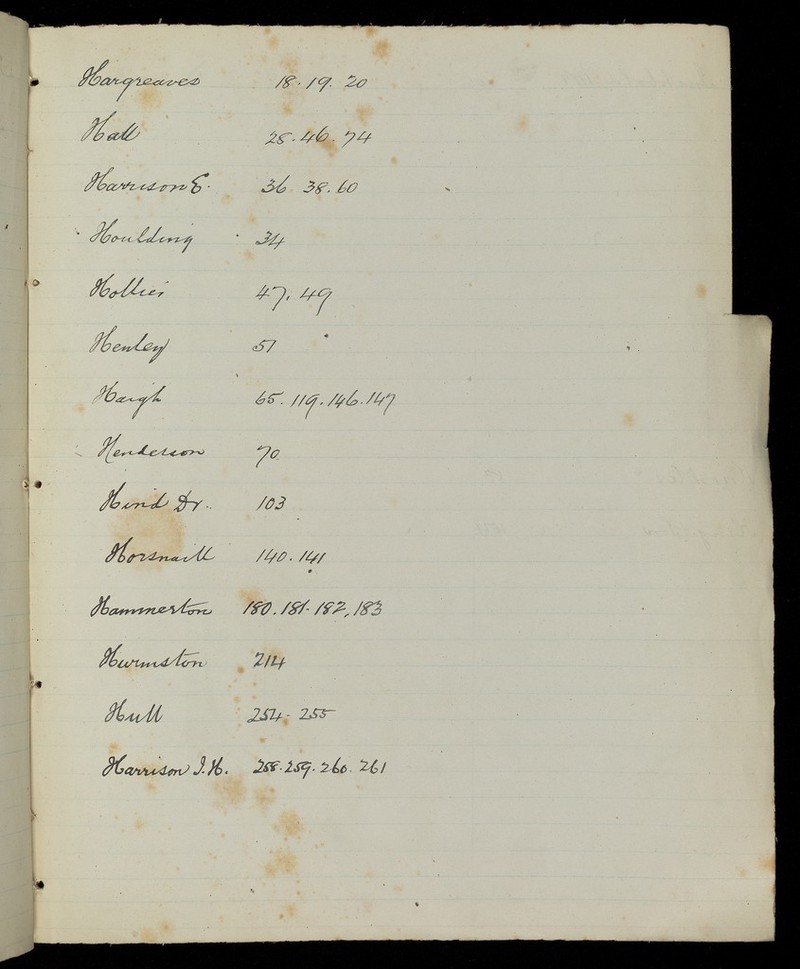 Hargreaves 18. 19. 20
Hall 28. 46. 74
Harrison E. 36. 38. 60
Houlding 34
Hollies 47. 49
Henley 51
Haigh 65. 119. 146. 147
Henderson 70
Hind Dr. 103
Horsnaill 140. 141
Hammerton 180. 181. 182, 183
Hurmston 214
Hull 254. 255
Harrison J. H. 258. 259. 260. 261